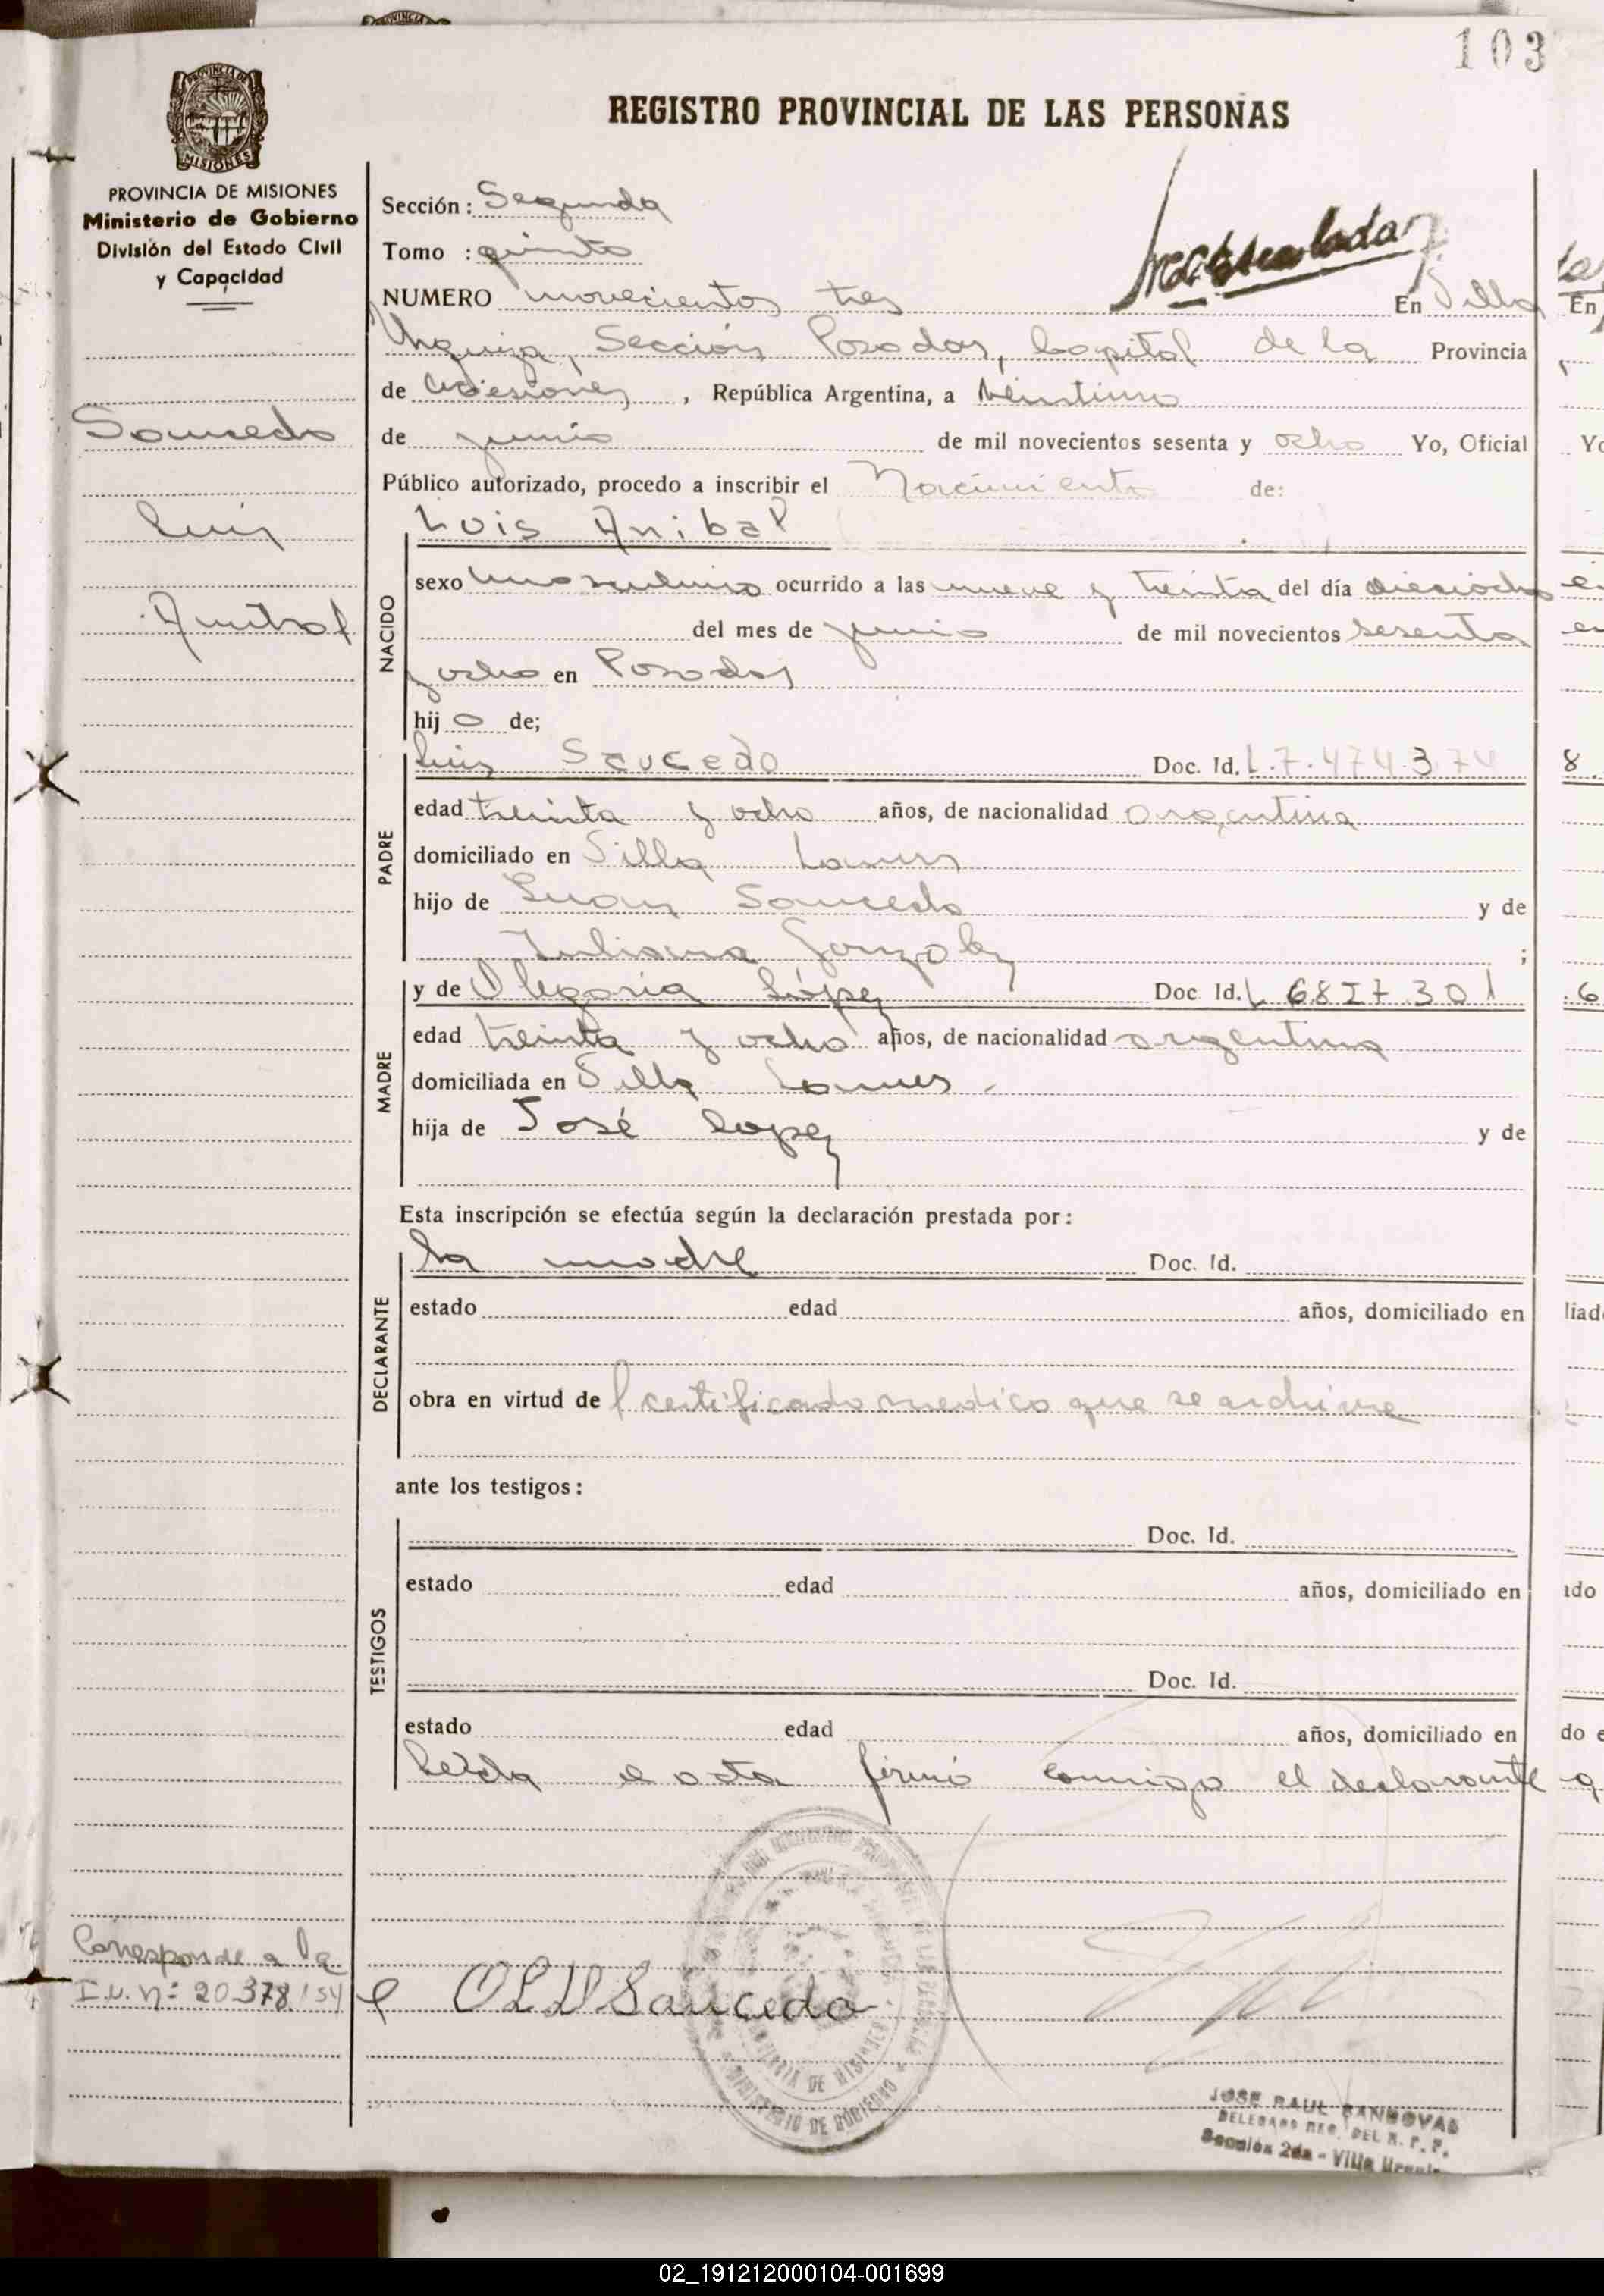 103
PROVINCIA DE
MISIONES
REGISTRO PROVINCIAL DE LAS PERSONAS
PROVINCIA DE MISIONES
Ministerio de Gobierno
División del Estado Civil
y Capacidad
Saucedo
Luis
Anibal
Sección: Segunda
Tomo : quinto
Matriculado
NUMERO novecientos tres En Villa
Urquiza, Sección Posadas, Capital de la Provincia
de Misiones, República Argentina, a veintiuno
de junio de mil novecientos sesenta y ocho Yo, Oficial
Público autorizado, procedo a inscribir el Nacimiento de:
NACIDO
Luis Anibal
sexo masculino ocurrido a las nueve y treinta del día dieciocho
del mes de junio de mil novecientos sesenta
y ocho en Posadas
hij o de;
PADRE
Luis Saucedo Doc. Id. L.7.474.374
edad treinta y ocho años, de nacionalidad argentina
domiciliado en Villa Lanus
hijo de Juan Saucedo y de
Juliana Gonzalez ;
MADRE
y de Olegaria López Doc. Id. L 6817301
edad treinta y ocho años, de nacionalidad argentina
domiciliada en Villa Lanus.
hija de José Lopez y de
Esta inscripción se efectúa según la declaración prestada por:
DECLARANTE
la madre Doc. Id.
estado edad años, domiciliado en
obra en virtud de certificado medico que se archiva
ante los testigos:
TESTIGOS
Doc. Id.
estado edad años, domiciliado en
Doc. Id.
estado edad años, domiciliado en
Leida el acta firmó conmigo el declarante
Corresponde a la
I.U. Nº 20.378/54
Saucedo
PROVINCIA DE MISIONES
MINISTERIO DE GOBIERNO
JOSE RAUL SANDOVAL
DELEGADO REG. DEL R. P. P.
Sección 2da - Villa Urquiza
02_191212000104-001699